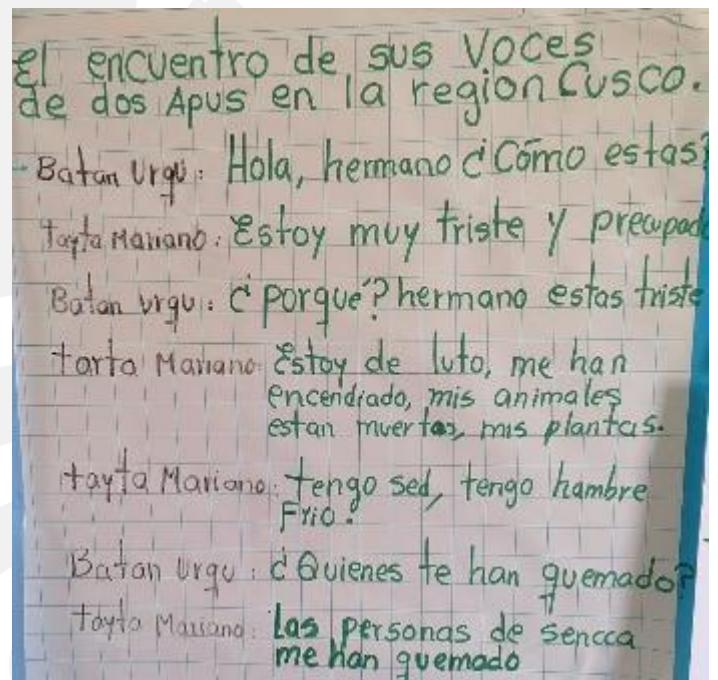 El encuentro de sus voces
de dos Apus en la region Cusco.
- Batan Urqu: Hola, hermano ¿Cómo estas?
Tayta Mariano: Estoy muy triste y precupado
Batan urqu: ¿porque? hermano estas triste
tayta Mariano: Estoy de luto, me han
encendiado, mis animales
estan muertos, mis plantas.
tayta Mariano: tengo sed, tengo hambre
Frio.
Batan Urqu: ¿Quienes te han quemado?
tayta Mariano: Las personas de sencca
me han quemado